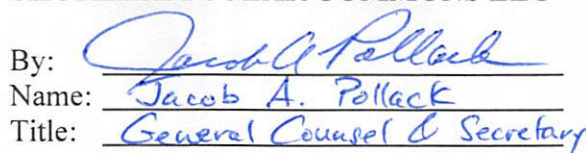 By: Jacob A Pollack
Name: Jacob A. Pollack
Title: General Counsel & Secretary